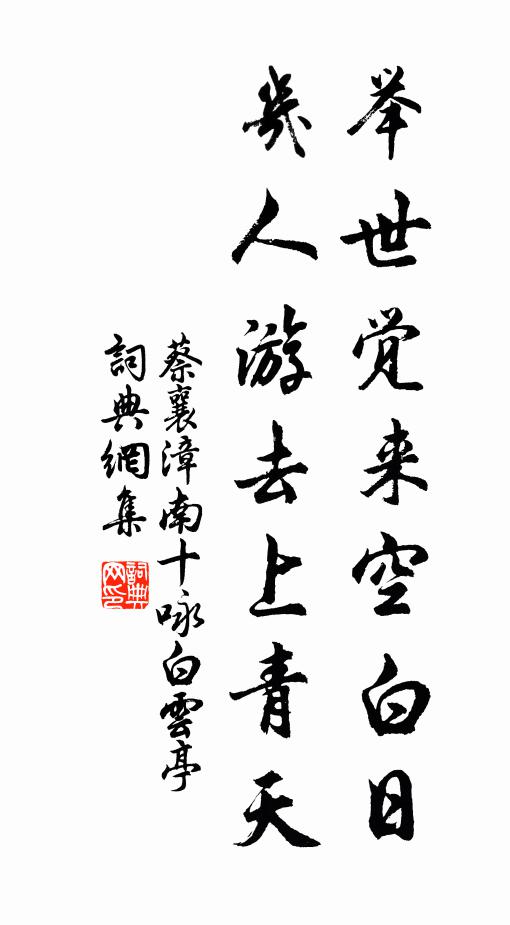 举世觉来空白日
几人游去上青天
蔡襄漳南十咏白雲亭
詞典網集
詞典网印